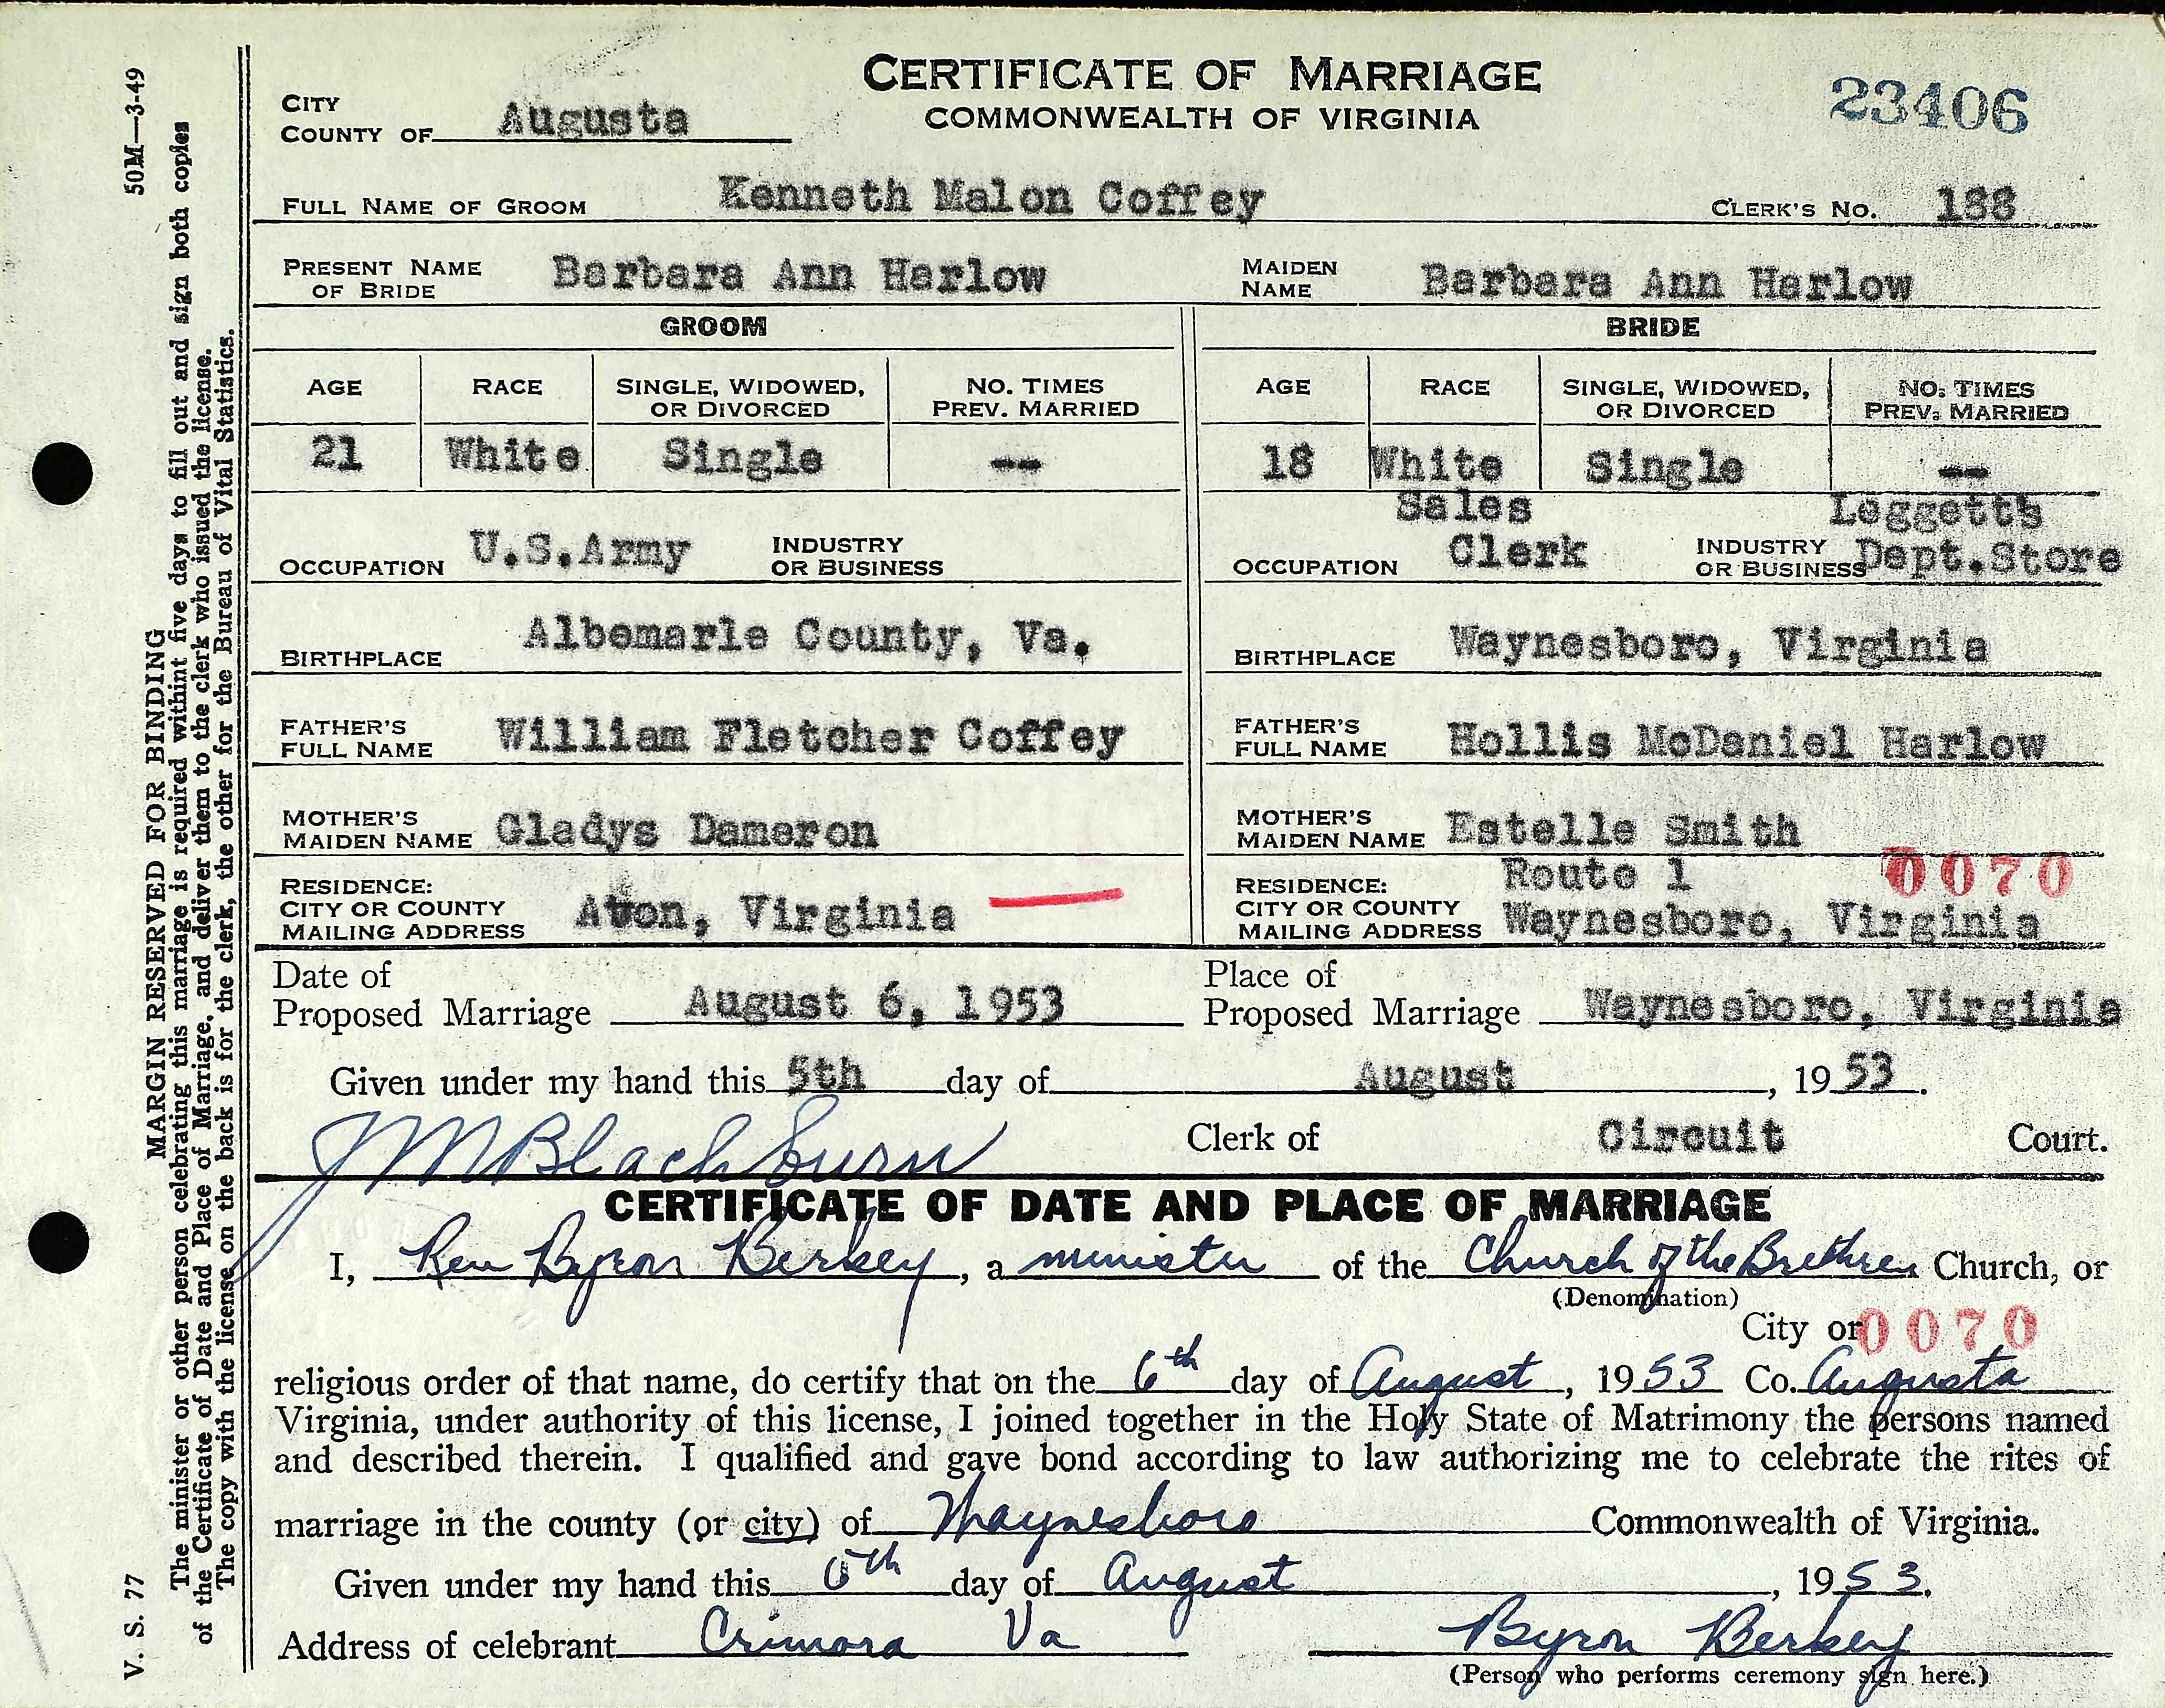 CERTIFICATE OF MARRIAGE
COMMONWEALTH OF VIRGINIA
23406
CITY
COUNTY OF Augusta
FULL NAME OF GROOM Kenneth Malon Coffey CLERK'S NO. 188
PRESENT NAME OF BRIDE Barbara Ann Harlow MAIDEN NAME Barbara Ann Harlow
GROOM BRIDE
AGE RACE SINGLE, WIDOWED, OR DIVORCED NO. TIMES PREV. MARRIED AGE RACE SINGLE, WIDOWED, OR DIVORCED NO. TIMES PREV. MARRIED
21 White Single -- 18 White Single --
OCCUPATION U.S.Army INDUSTRY OR BUSINESS OCCUPATION Sales Clerk INDUSTRY OR BUSINESS Leggetts Dept.Store
BIRTHPLACE Albemarle County, Va. BIRTHPLACE Waynesboro, Virginia
FATHER'S FULL NAME William Fletcher Coffey FATHER'S FULL NAME Hollis McDaniel Harlow
MOTHER'S MAIDEN NAME Gladys Dameron MOTHER'S MAIDEN NAME Estelle Smith
RESIDENCE: CITY OR COUNTY MAILING ADDRESS Avon, Virginia RESIDENCE: CITY OR COUNTY MAILING ADDRESS Route 1 Waynesboro, Virginia 0070
Date of Proposed Marriage August 6, 1953 Place of Proposed Marriage Waynesboro, Virginia
Given under my hand this 5th day of August, 1953.
J M Blackburn Clerk of Circuit Court.
CERTIFICATE OF DATE AND PLACE OF MARRIAGE
I, Rev Byron Berkey, a minister of the Church of the Brethren Church, or
(Denomination)
City or 0070
religious order of that name, do certify that on the 6th day of August, 1953 Co. Augusta
Virginia, under authority of this license, I joined together in the Holy State of Matrimony the persons named
and described therein. I qualified and gave bond according to law authorizing me to celebrate the rites of
marriage in the county (or city) of Waynesboro Commonwealth of Virginia.
Given under my hand this 6th day of August, 1953.
Address of celebrant Crimora Va Byron Berkey
(Person who performs ceremony sign here.)
V. S. 77 MARGIN RESERVED FOR BINDING 50M—3-49
The minister or other person celebrating this marriage is required withint five days to fill out and sign both copies
of the Certificate of Date and Place of Marriage, and deliver them to the clerk who issued the license.
The copy with the license on the back is for the clerk, the other for the Bureau of Vital Statistics.